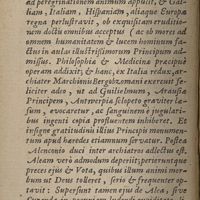 ad peregrinationem animum appulit, & Gal-
liam, Italiam, Hispaniam, aliaque Europæ
regna perlustravit, ob exquisitam eruditio-
nem doctis omnibus acceptus (ac ob mores ad
omnem humanitatem & lucem hominum fa-
ctus in aulas illustrissimorum Principum ad-
missus. Philosophiæ & Medicinæ præcipuè
operam addixit, & hanc, ex Italia redux, ar-
chiater Marchionis Bergobzomani exercuit fe-
liciter adeò, ut ad Guilielmum, Arausiæ
Principem, Antverpiæ sclopeto graviter læ-
sum, evocaretur, ac sanguinem è jugulari-
bus ingenti copia profluentem inhiberet. Et
insigne gratitudinis illius Principis monumen-
tum apud hæredes etiamnum servatur. Postea
Alenconio duci inter archiatros adlectus est.
Aleam verò admodum deperiit; perieruntque
preces ejus & Vota, quibus illum animi mor-
bum ut Deus tolleret, seriò & frequenter op-
tavit: Supersunt tamen ejus de Alea, sive